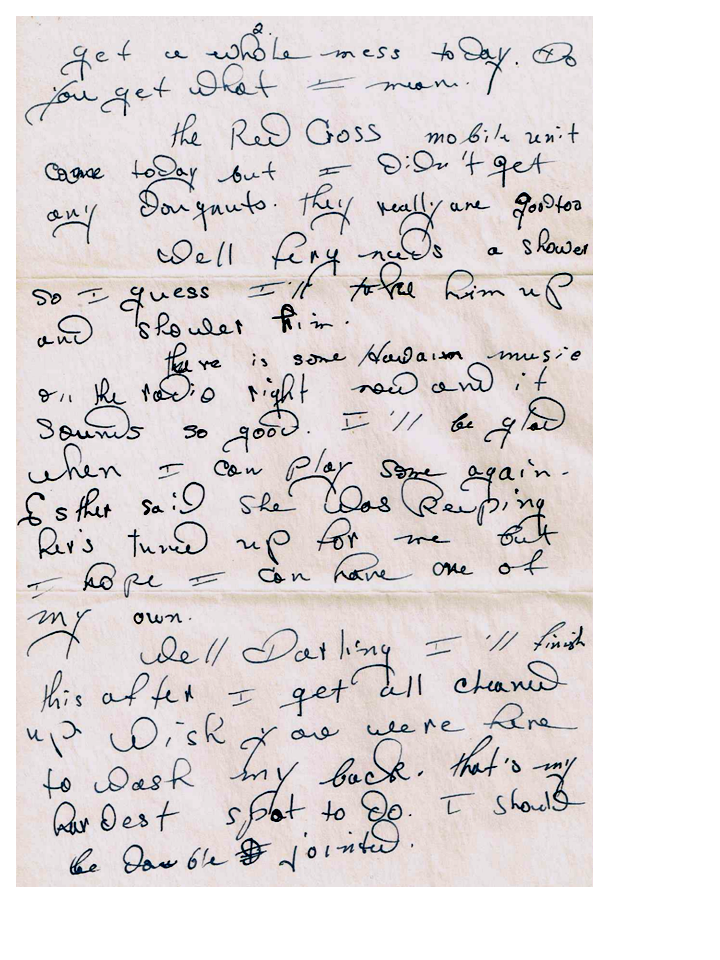 2.
get a whole mess today. Do
you get what I mean.
the Red Cross mobile unit
came today but I Didn't get
any Dougnuts. they really are good too
Well fery needs a shower
so I guess I'll take him up
and shower him.
there is some Hawaim music
on the radio right now and it
sounds so good. I'll be glad
when I can play some again.
Esther said she was Keeping
her's tuned up for me but
I hope I can have one of
my own.
Well Darling I'll finish
this after I get all cleaned
up Wish you were here
to wash my back. that's my
hardest spot to do. I should
be Double jointed.